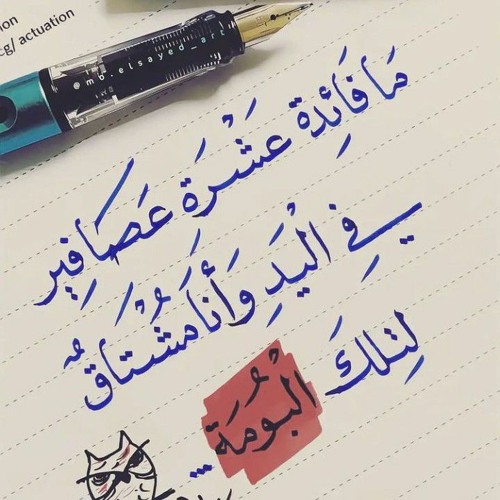 ion
cg/ actuation
@mb.elsayed_art
مَا فَائِدة عَشْرَةِ عَصَافِير
في الْيَدِ وَأَنَا مُشْتَاقٌ
لِتِلكَ الْبُومَة...